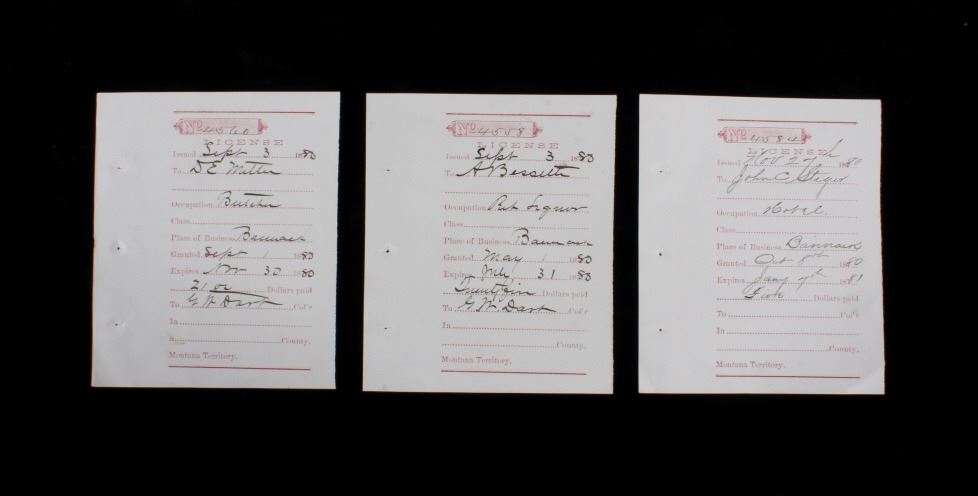 No 4560
LICENSE
Issued Sept 3 1880
To D E Mitten
Occupation Butcher
Class
Place of Business Bannack
Granted Sept 1 1880
Expires Nov 30 1880
21 00 Dollars paid
To G W Dart Col'r
In
County,
Montana Territory.
No 4558
LICENSE
Issued Sept 3 1880
To A Bessette
Occupation Ret Liquor
Class
Place of Business Bannack
Granted May 1 1880
Expires July 31 1880
Dollars paid
To G. W. Dart Col'r
In
County,
Montana Territory.
No 4584
LICENSE
Issued Nov 27th 1880
To John C Steger
Occupation Hotel.
Class
Place of Business Bannack
Granted Oct 8th 1880
Expires Jany 7th 1881
Five Dollars paid
To Col'r
In
County,
Montana Territory.